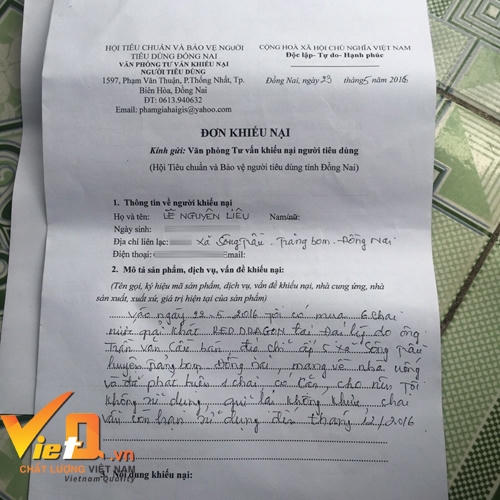 HỘI TIÊU CHUẨN VÀ BẢO VỆ NGƯỜI
TIÊU DÙNG ĐỒNG NAI
VĂN PHÒNG TƯ VẤN KHIẾU NẠI
NGƯỜI TIÊU DÙNG
1597, Phạm Văn Thuận, P.Thống Nhất, Tp.
Biên Hòa, Đồng Nai
ĐT: 0613.940632
Email: phamgiahaigis@yahoo.com
CỘNG HOÀ XÃ HỘI CHỦ NGHĨA VIỆT NAM
Độc lập- Tự do- Hạnh phúc
Đồng Nai, ngày 23 tháng 5 năm 2016
ĐƠN KHIẾU NẠI
Kính gửi: Văn phòng Tư vấn khiếu nại người tiêu dùng
(Hội Tiêu chuẩn và Bảo vệ người tiêu dùng tỉnh Đồng Nai)
1. Thông tin về người khiếu nại
Họ và tên: LÊ NGUYÊN LIÊU Nam/nữ:
Ngày sinh:
Địa chỉ liên lạc: Xã Sông Trầu. Trảng bom. Đồng Nai
Điện thoại: Email:
2. Mô tả sản phẩm, dịch vụ, vấn đề khiếu nại:
(Tên gọi, ký hiệu mã sản phẩm, dịch vụ, vấn đề khiếu nại, nhà cung ứng, nhà
sản xuất, xuất xứ, giá trị hiện tại của sản phẩm)
Vào ngày 22.5.2016 Tôi có mua 6 chai
nước giải khát RED DRAGON tại Đại lý do ông
Trần Văn Cầu bán địa chỉ ấp 5 Xã Sông Trầu
huyện Trảng bom Đồng Nai, mang về nhà uống
và đã phát hiện 1 chai có Cặn, cho nên Tôi
không sử dụng khiếu chai
vẫn còn hạn sử dụng đến tháng 12/2016
3. Nội dung khiếu nại:
VietQ.vn
CHẤT LƯỢNG VIỆT NAM
Vietnam Quality